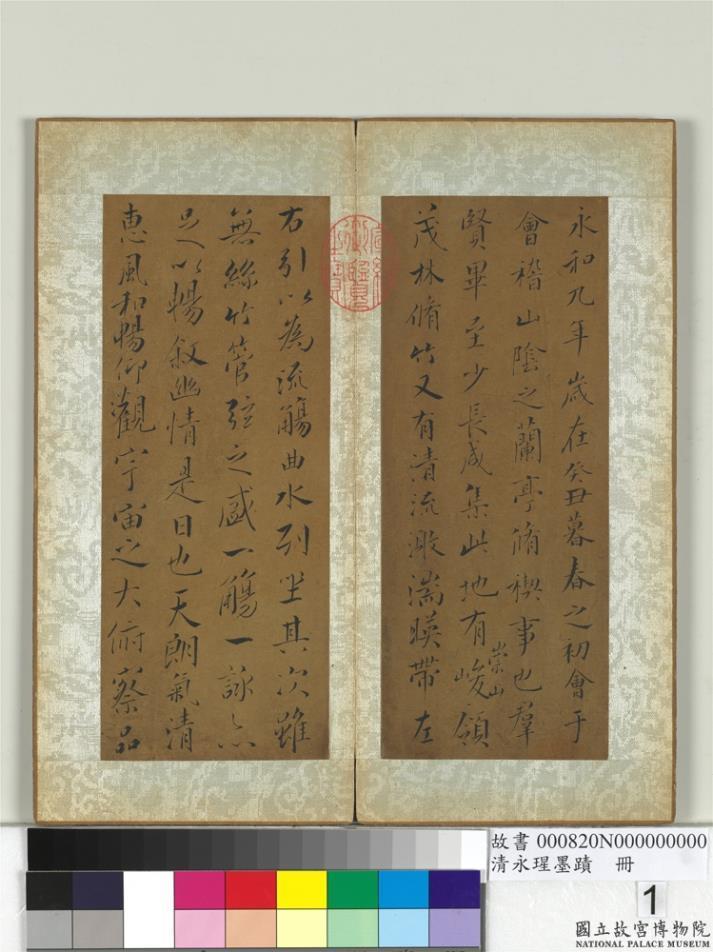 永和九年歲在癸丑暮春之初會于
會稽山陰之蘭亭脩禊事也羣
賢畢至少長咸集此地有崇山峻領
茂林脩竹又有清流激湍暎帶左
右引以為流觴曲水列坐其次雖
無絲竹管弦之盛一觴一詠亦
足以暢叙幽情是日也天朗氣清
惠風和暢仰觀宇宙之大俯察品
故書 000820N000000000
清永瑆墨蹟 冊
1
國立故宮博物院
NATIONAL PALACE MUSEUM